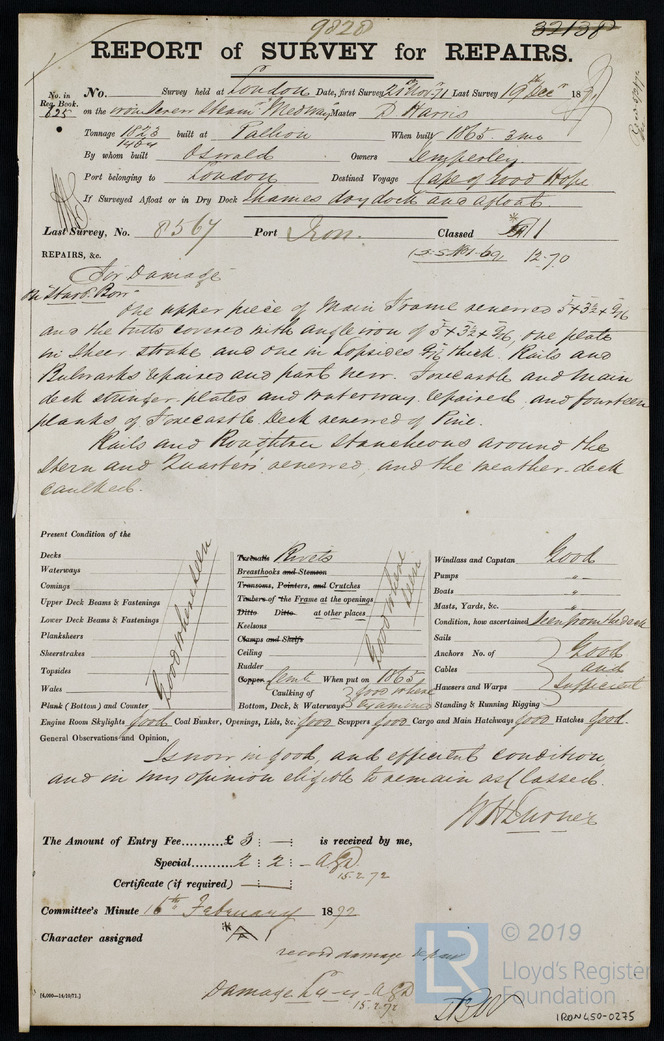 9828
32138
REPORT of SURVEY for REPAIRS.
No. in Reg. Book. 625
No. Survey held at London Date, first Survey 20th Novr 71 Last Survey 19th Decr 1871
on the iron Screw Steamr "Medway" Master D Harris
Tonnage 1823 built at Pallion When built 1865. 3mo
1404
By whom built Oswald Owners Temperley
Port belonging to London Destined Voyage Cape of Good Hope.
If Surveyed Afloat or in Dry Dock Thames dry dock and afloat
Last Survey, No. 8567 Port Iron. Classed A1
12.70
REPAIRS, &c.
For Damage
On Starbd Bow
One upper piece of Main Frame renewed 5 x 3½ x 9/16
and the butts covered with angle iron of 5 x 3½ x 9/16, one plate
in Sheer strake and one in topsides 9/16 thick. Rails and
Bulwarks repaired and part new. Forecastle and main
deck stringer plates and waterway repaired, and fourteen
planks of Forecastle Deck renewed of Pine.
Rails and Roughtree Stancheons around the
Stern and Quarters renewed, and the weather-deck
caulked.
Present Condition of the
Decks
Waterways
Comings
Upper Deck Beams & Fastenings
Lower Deck Beams & Fastenings
Planksheers
Sheerstrakes
Topsides
Wales
Plank (Bottom) and Counter
Good where seen
Treenails Rivets
Breasthooks and Stemson
Transoms, Pointers, and Crutches
Timbers of the Frame at the openings
Ditto Ditto at other places
Keelsons
Clamps and Shelfs
Ceiling
Rudder
Good where seen
Copper Cemt When put on 1865
Caulking of Bottom, Deck, & Waterways good where examined
Windlass and Capstan Good
Pumps "
Boats "
Masts, Yards, &c. "
Condition, how ascertained Seen from the deck
Sails
Anchors No. of
Cables
Hawsers and Warps
Standing & Running Rigging
Good and Sufficient
Engine Room Skylights good Coal Bunker, Openings, Lids, &c. good Scuppers good Cargo and Main Hatchways good Hatches good.
General Observations and Opinion,
Is now in good, and efficient condition,
and in my opinion eligible to remain as Classed.
W H Turner
The Amount of Entry Fee.........£ 3 : — : is received by me,
Special...... 2 : 2 : -
15.2.72
Certificate (if required) — : :
Committee's Minute 16th February 1872
Character assigned A 1
record damage repair
Damage
15.2.72
[4,000—14/10/71.]
LR
© 2019
Lloyd's Register
Foundation
IRON450-0275